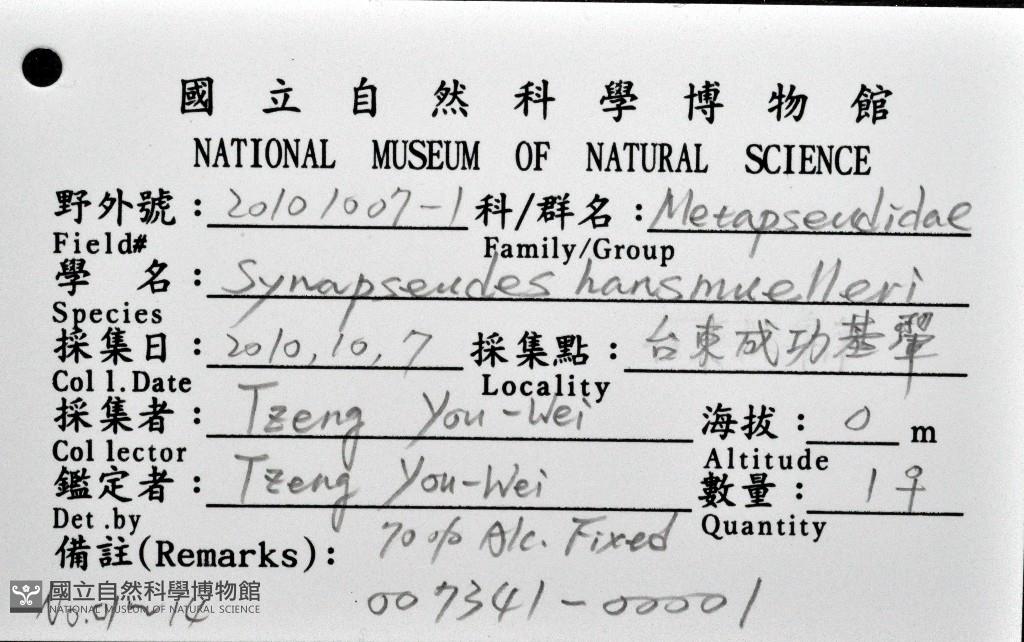 國立自然科學博物館
NATIONAL MUSEUM OF NATURAL SCIENCE
野外號：20101007-1 科/群名：Metapseudidae
Field# Family/Group
學 名：Synapseudes hansmuelleri
Species
採集日：2010,10,7 採集點：台東成功基翬
Coll.Date Locality
採集者：Tzeng You-Wei 海拔：0 m
Collector Altitude
鑑定者：Tzeng You-Wei 數量：1♀
Det.by Quantity
備註(Remarks)： 70% Alc. Fixed
國立自然科學博物館
NATIONAL MUSEUM OF NATURAL SCIENCE
007341-00001